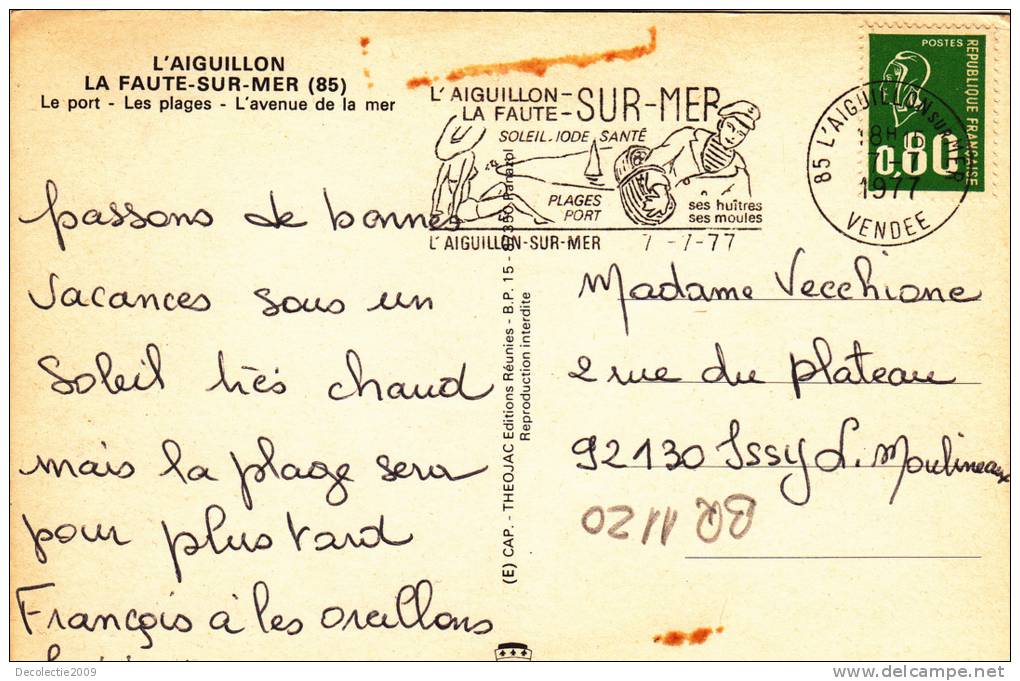 L'AIGUILLON
LA FAUTE-SUR-MER (85)
Le port - Les plages - L'avenue de la mer
passons de bonnes
vacances sous un
Soleil très chaud
mais la plage sera
pour plus tard
François à les oreillons
L'AIGUILLON-
LA FAUTE-SUR-MER
SOLEIL.IODE.SANTÉ
PLAGES
PORT
ses huîtres
ses moules
L'AIGUILLON-SUR-MER 7 -7-77
POSTES
REPUBLIQUE FRANÇAISE
0,80
85 L'AIGUILLON SUR MER
18H
7-7
1977
VENDEE
(E) CAP. - THEOJAC Editions Réunies - B.P. 15 - 87350 Panazol
Reproduction interdite
Madame Vecchione
2 rue du plateau
92130 Issy L. Moulineaux
BR 1120
Decolectie2009
www.delcampe.net